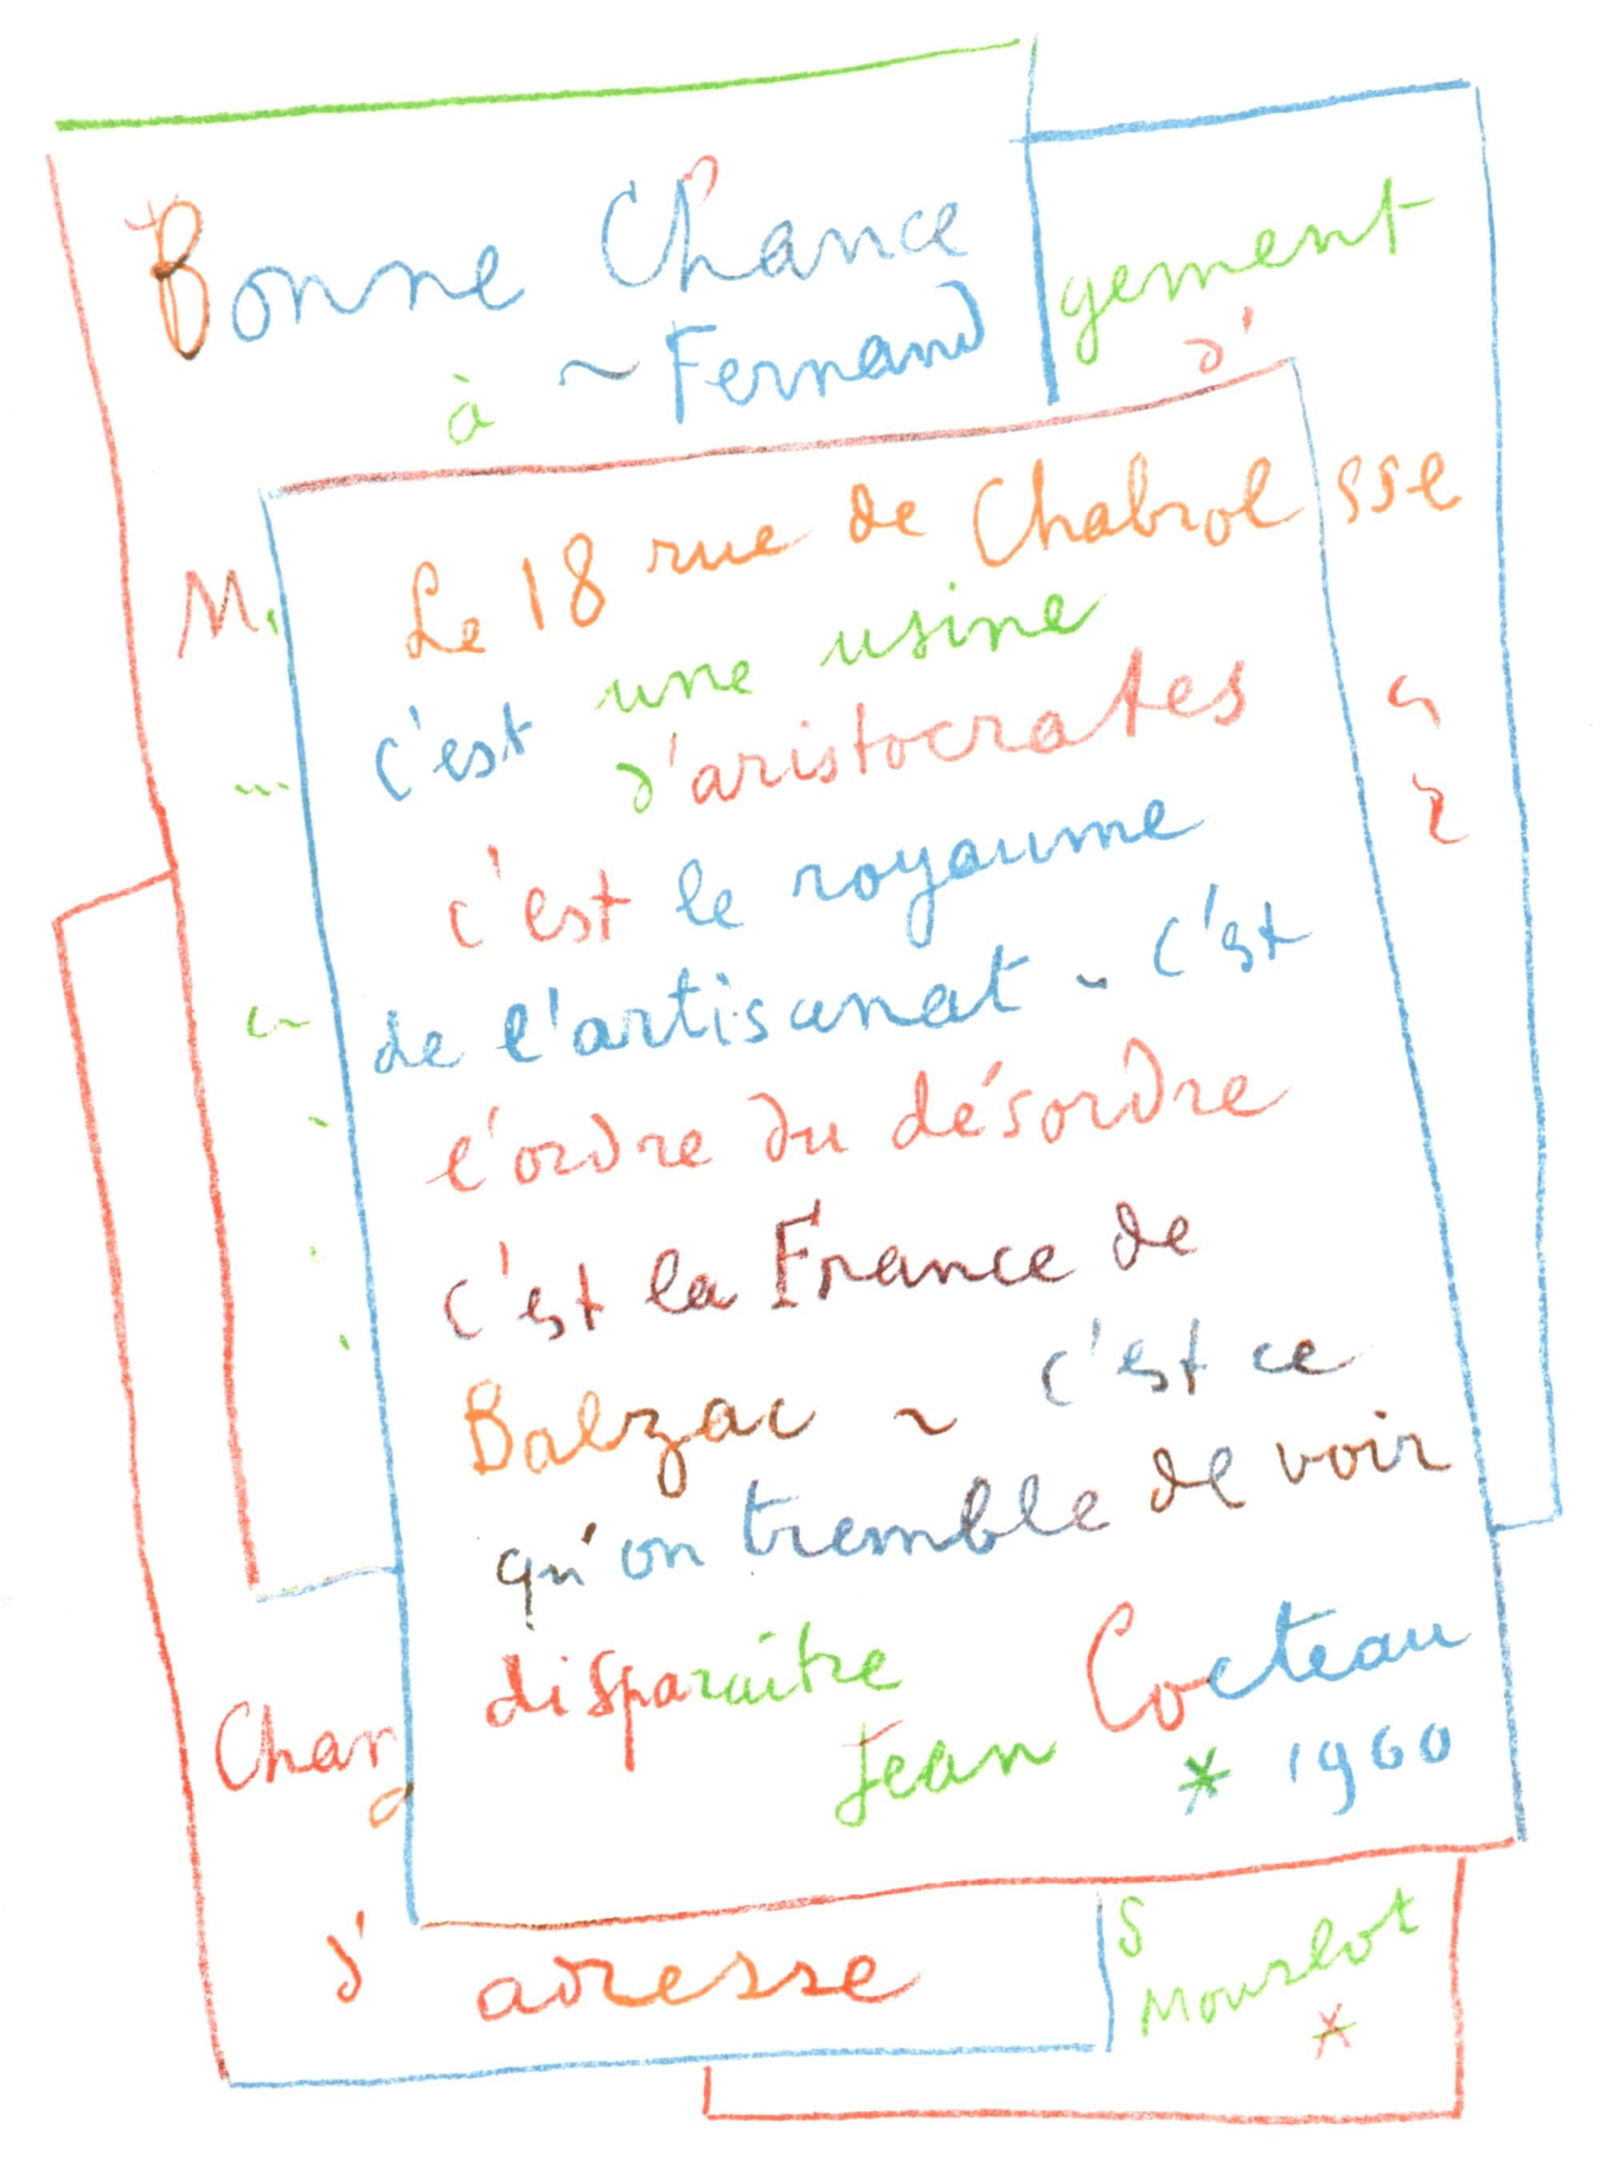 Bonne Chance
à ~ Fernand
gement
d'
M.
sse
Le 18 rue de Chabrol
c'est une usine
d'aristocrates
c'est le royaume
de l'artisanat - c'est
l'ordre du désordre
c'est la France de
Balzac ~ c'est ce
qu'on tremble de voir
disparaitre
Jean Cocteau
* 1960
Chan
d' adresse
S
Mourlot
*